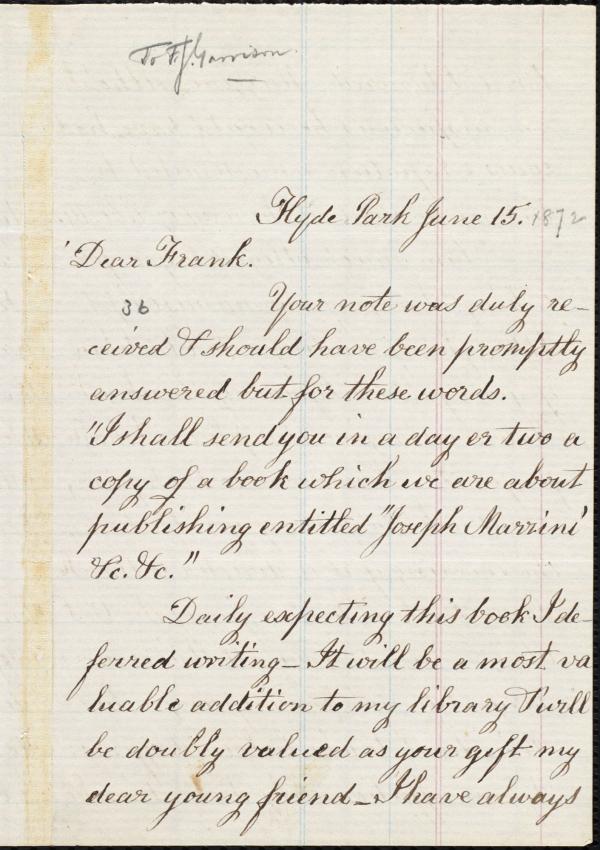 To F. J. Garrison.
Hyde Park June 15. 1872
Dear Frank.
36 Your note was duly re-
ceived & should have been promptly
answered but for these words.
"I shall send you in a day or two a
copy of a book which we are about
publishing entitled "Joseph Mazzini'
&c. &c."
Daily expecting this book I de-
ferred writing_ It will be a most va
luable addition to my library & will
be doubly valued as your gift my
dear young friend_ I have always